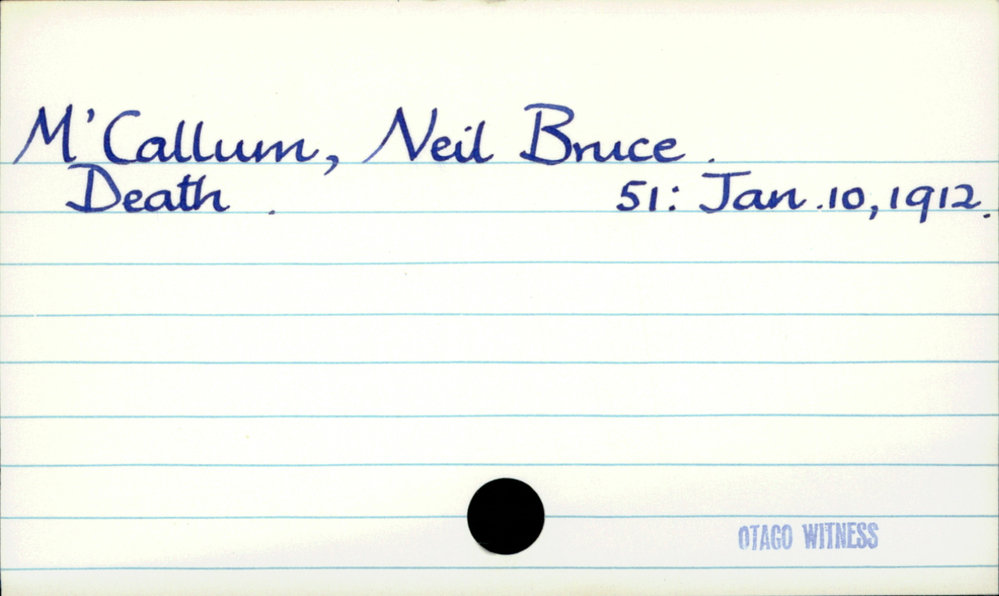 M'Callum, Neil Bruce.
Death. 51: Jan. 10, 1912.
OTAGO WITNESS